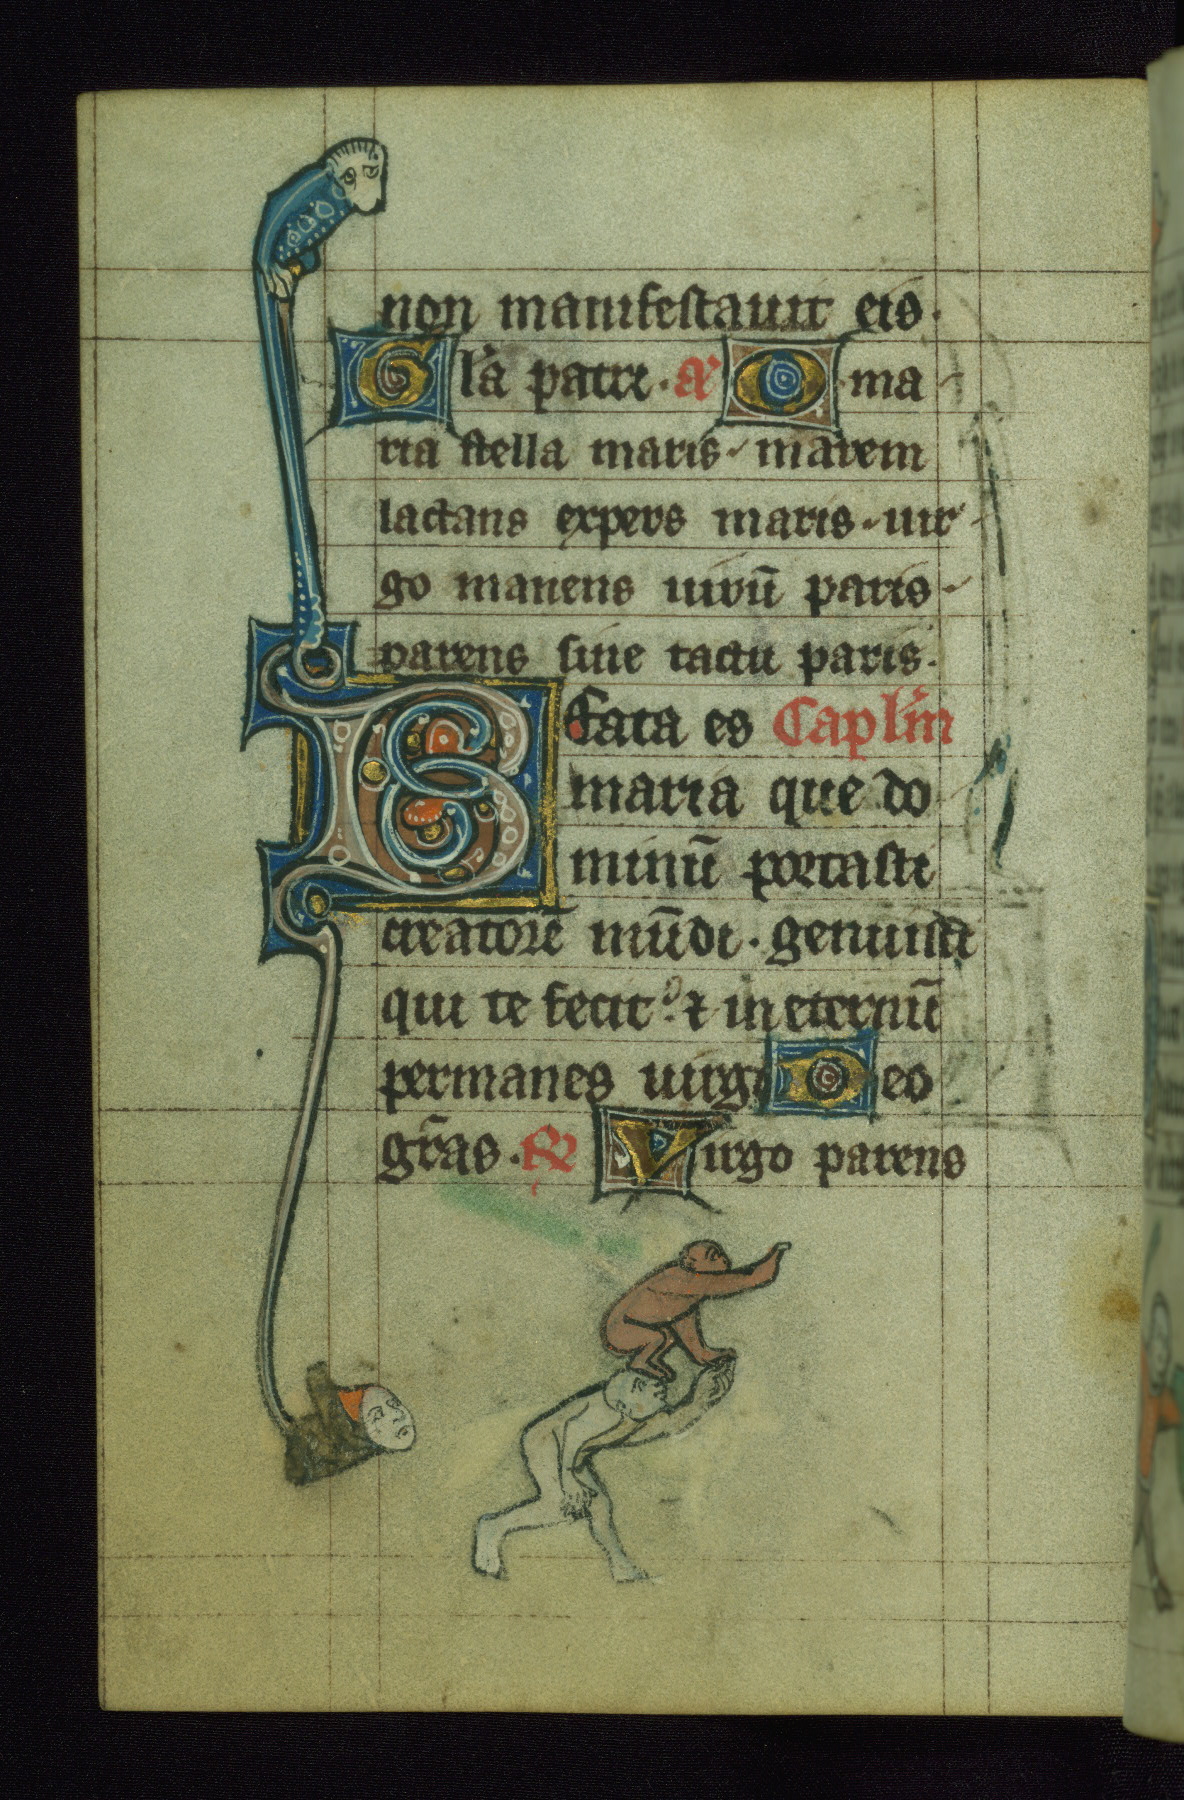 non manifestauit eis.
Gl'a patri. añ O ma
ria stella maris marem
lactans expers maris uir
go manens uirū paris
parens sine tactu paris.
Beata es Capl'm
maria que do
minū portasti
creatorē mūdi. genuisti
qui te fecit. ⁊ in eternū
permanes uirgo Deo
gr̄as. R Virgo parens